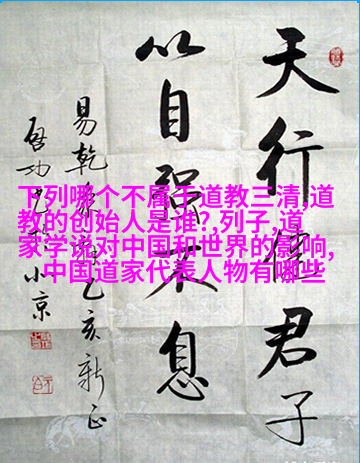 下列哪个不属于道教三清,道
教的创始人是谁?,列子,道
家学说对中国和世界的影响,
中国道家代表人物有哪些
天行健君子
以自强不息
易乾 乙亥新正
启功 小京